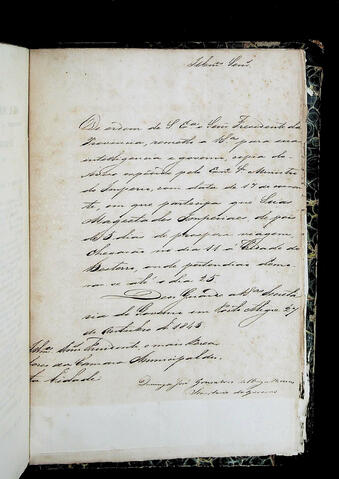 Illmos. Senrs.
De ordem de S. Exa. o Senr. Presidente da
Provincia, remetto a Vas. para sua
intelligencia e governo, copia do
Aviso expedido pelo Exmo. Sr. Ministro
do Imperio, com data de 17 do corren
te, em que participa que Suas
Magestades Imperiaes de pois
de 5 dias de prospera viagem,
chegarão no dia 11 á Cidade do
Desterro, onde pretendião demo
rar-se até o dia 25.
Deos Guarde a Vas. Secreta
ria do Governo em Porto Alegre 27
de Outubro de 1845
Illmos. Senrs. Presidente e mais Verea
dores da Camara Municipal desta
Cidade
Domingos José Gonçalves de Magalhaens
Secretario do Governo